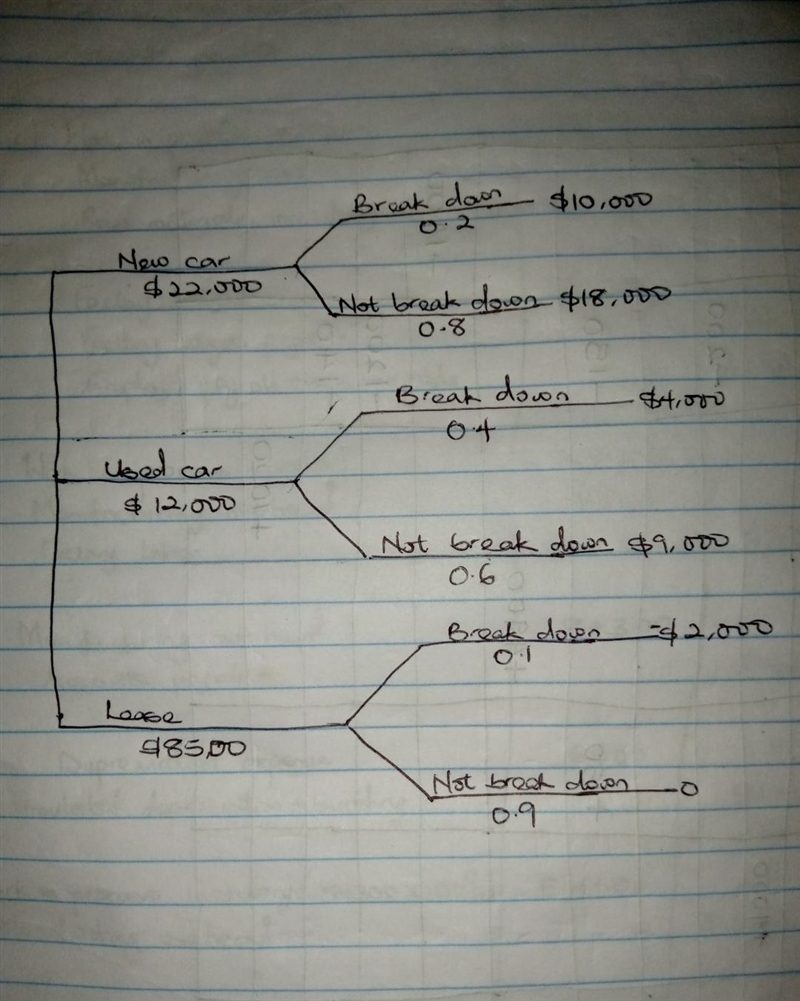 Break down $10,000
0.2
New car
$22,000
Not break down $18,000
0.8
Break down $4,000
0.4
Used car
$12,000
Not break down $9,000
0.6
Break down -$2,000
0.1
Lease
$85,00
Not break down 0
0.9